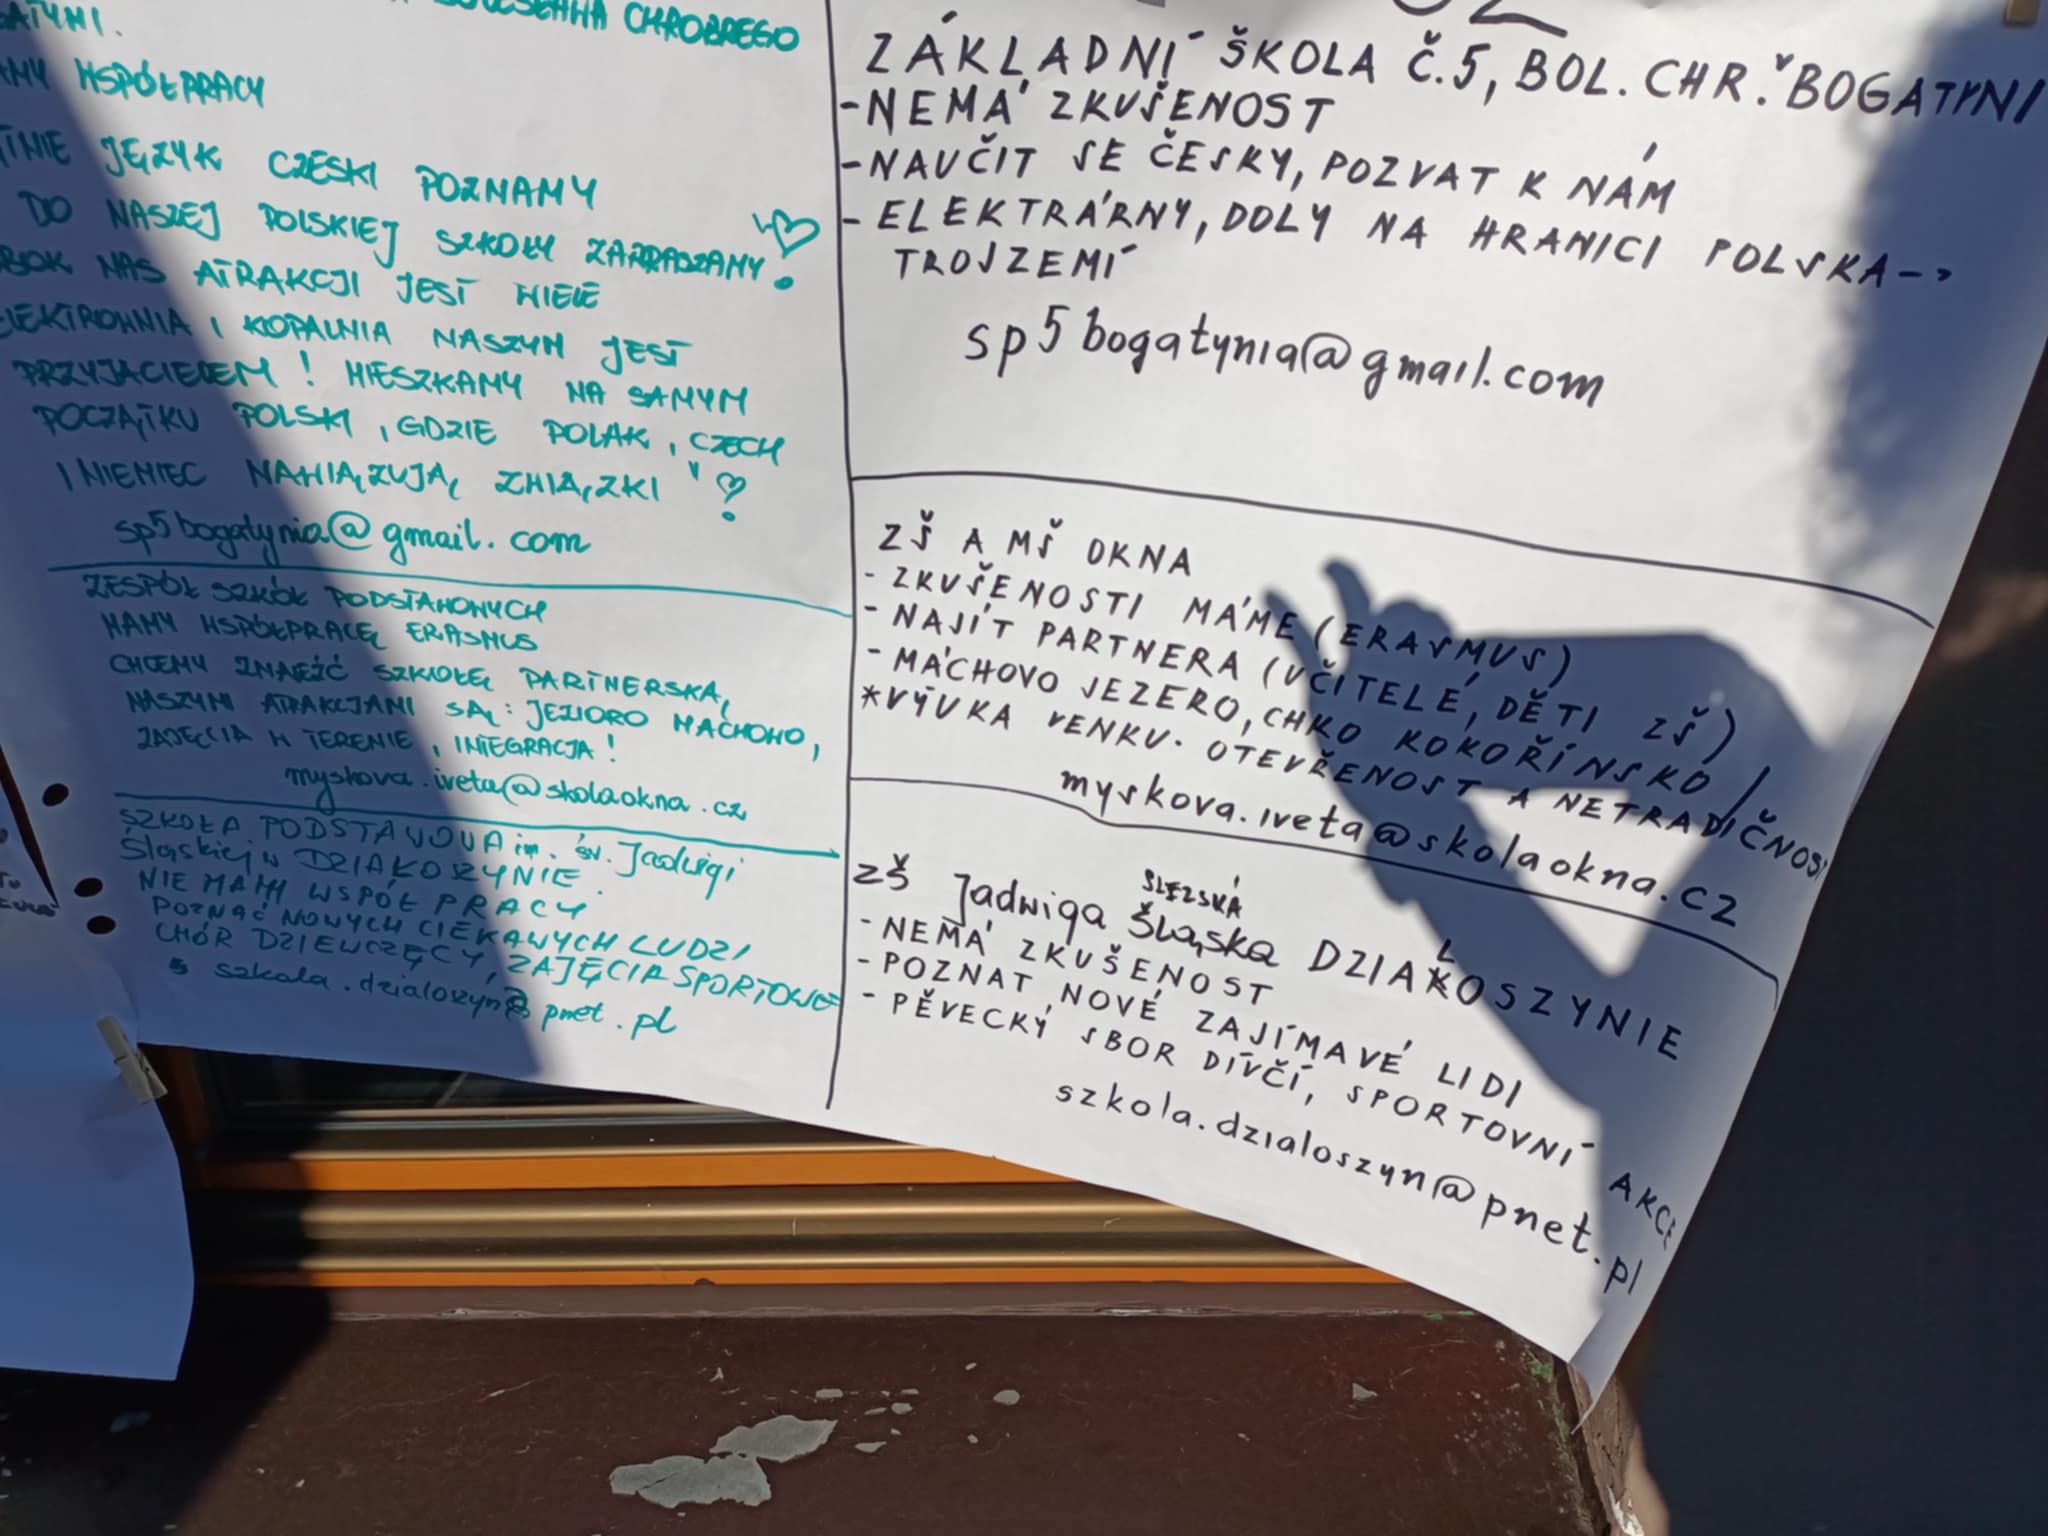 CHROBREGO
WSPÓŁPRACY
JĘZYK CZESKI POZNAMY
DO NASZEJ POLSKIEJ SZKOŁY ZAPRASZAMY!
NAS ATRAKCJI JEST WIELE
ELEKTROWNIA I KOPALNIA NASZYM JEST
PRZYJACIELEM! MIESZKAMY NA SAMYM
POCZĄTKU POLSKI, GDZIE POLAK, CZECH
I NIEMIEC NAWIĄZUJĄ ZWIĄZKI"
sp5bogatynia@gmail.com
ZESPÓŁ SZKÓŁ PODSTAWOWYCH
MAMY WSPÓŁPRACĘ ERASMUS
CHCEMY ZNALEŹĆ SZKOŁĘ PARTNERSKĄ,
NASZYMI ATRAKCJAMI SĄ: JEZIORO MACHOWO,
ZAJĘCIA W TERENIE, INTEGRACJA!
myskova.iveta@skolaokna.cz
SZKOŁA PODSTAVOVA im. św. Jadwigi
Śląskiej w DZIAKOSZYNIE.
NIE MAMY WSPÓŁPRACY
POZNAĆ NOWYCH CIEKAWYCH LUDZI
CHÓR DZIEWCZĘCY, ZAJĘCIA SPORTOWE
szkola.dzialoszyn@pnet.pl
ZÁKLADNÍ ŠKOLA Č.5, BOL. CHR. V BOGATYNI
-NEMÁ ZKUŠENOST
-NAUČIT SE ČESKY, POZVAT K NÁM
-ELEKTRÁRNY, DOLY NA HRANICI POLSKA-->
TROJZEMÍ
sp5bogatynia@gmail.com
ZŠ A MŠ OKNA
- ZKUŠENOSTI MÁME (ERASMUS)
- NAJÍT PARTNERA (UČITELÉ, DĚTI ZŠ)
- MÁCHOVO JEZERO, CHKO KOKOŘÍNSKO /
*VÝUKA VENKU. OTEVŘENOST A NETRADIČNOS
myskova.iveta@skolaokna.cz
SLEZSKÁ
ZŠ Jadwiga Śląska DZIAŁOSZYNIE
- NEMÁ ZKUŠENOST
- POZNAT NOVÉ ZAJÍMAVÉ LIDI
- PĚVECKÝ SBOR DÍVČÍ, SPORTOVNÍ AKCE
szkola.dzialoszyn@pnet.pl